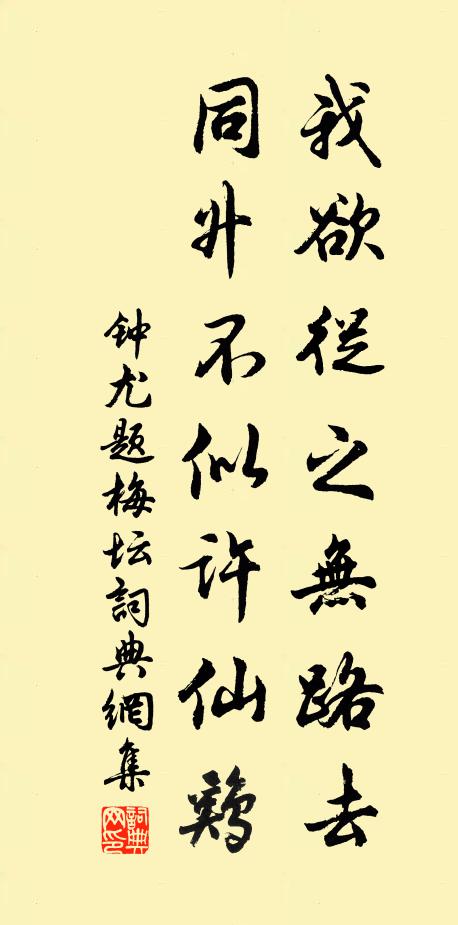 我欲從之無路去
同升不似許仙鷄
钟尤题梅坛詞典網集
詞典網印